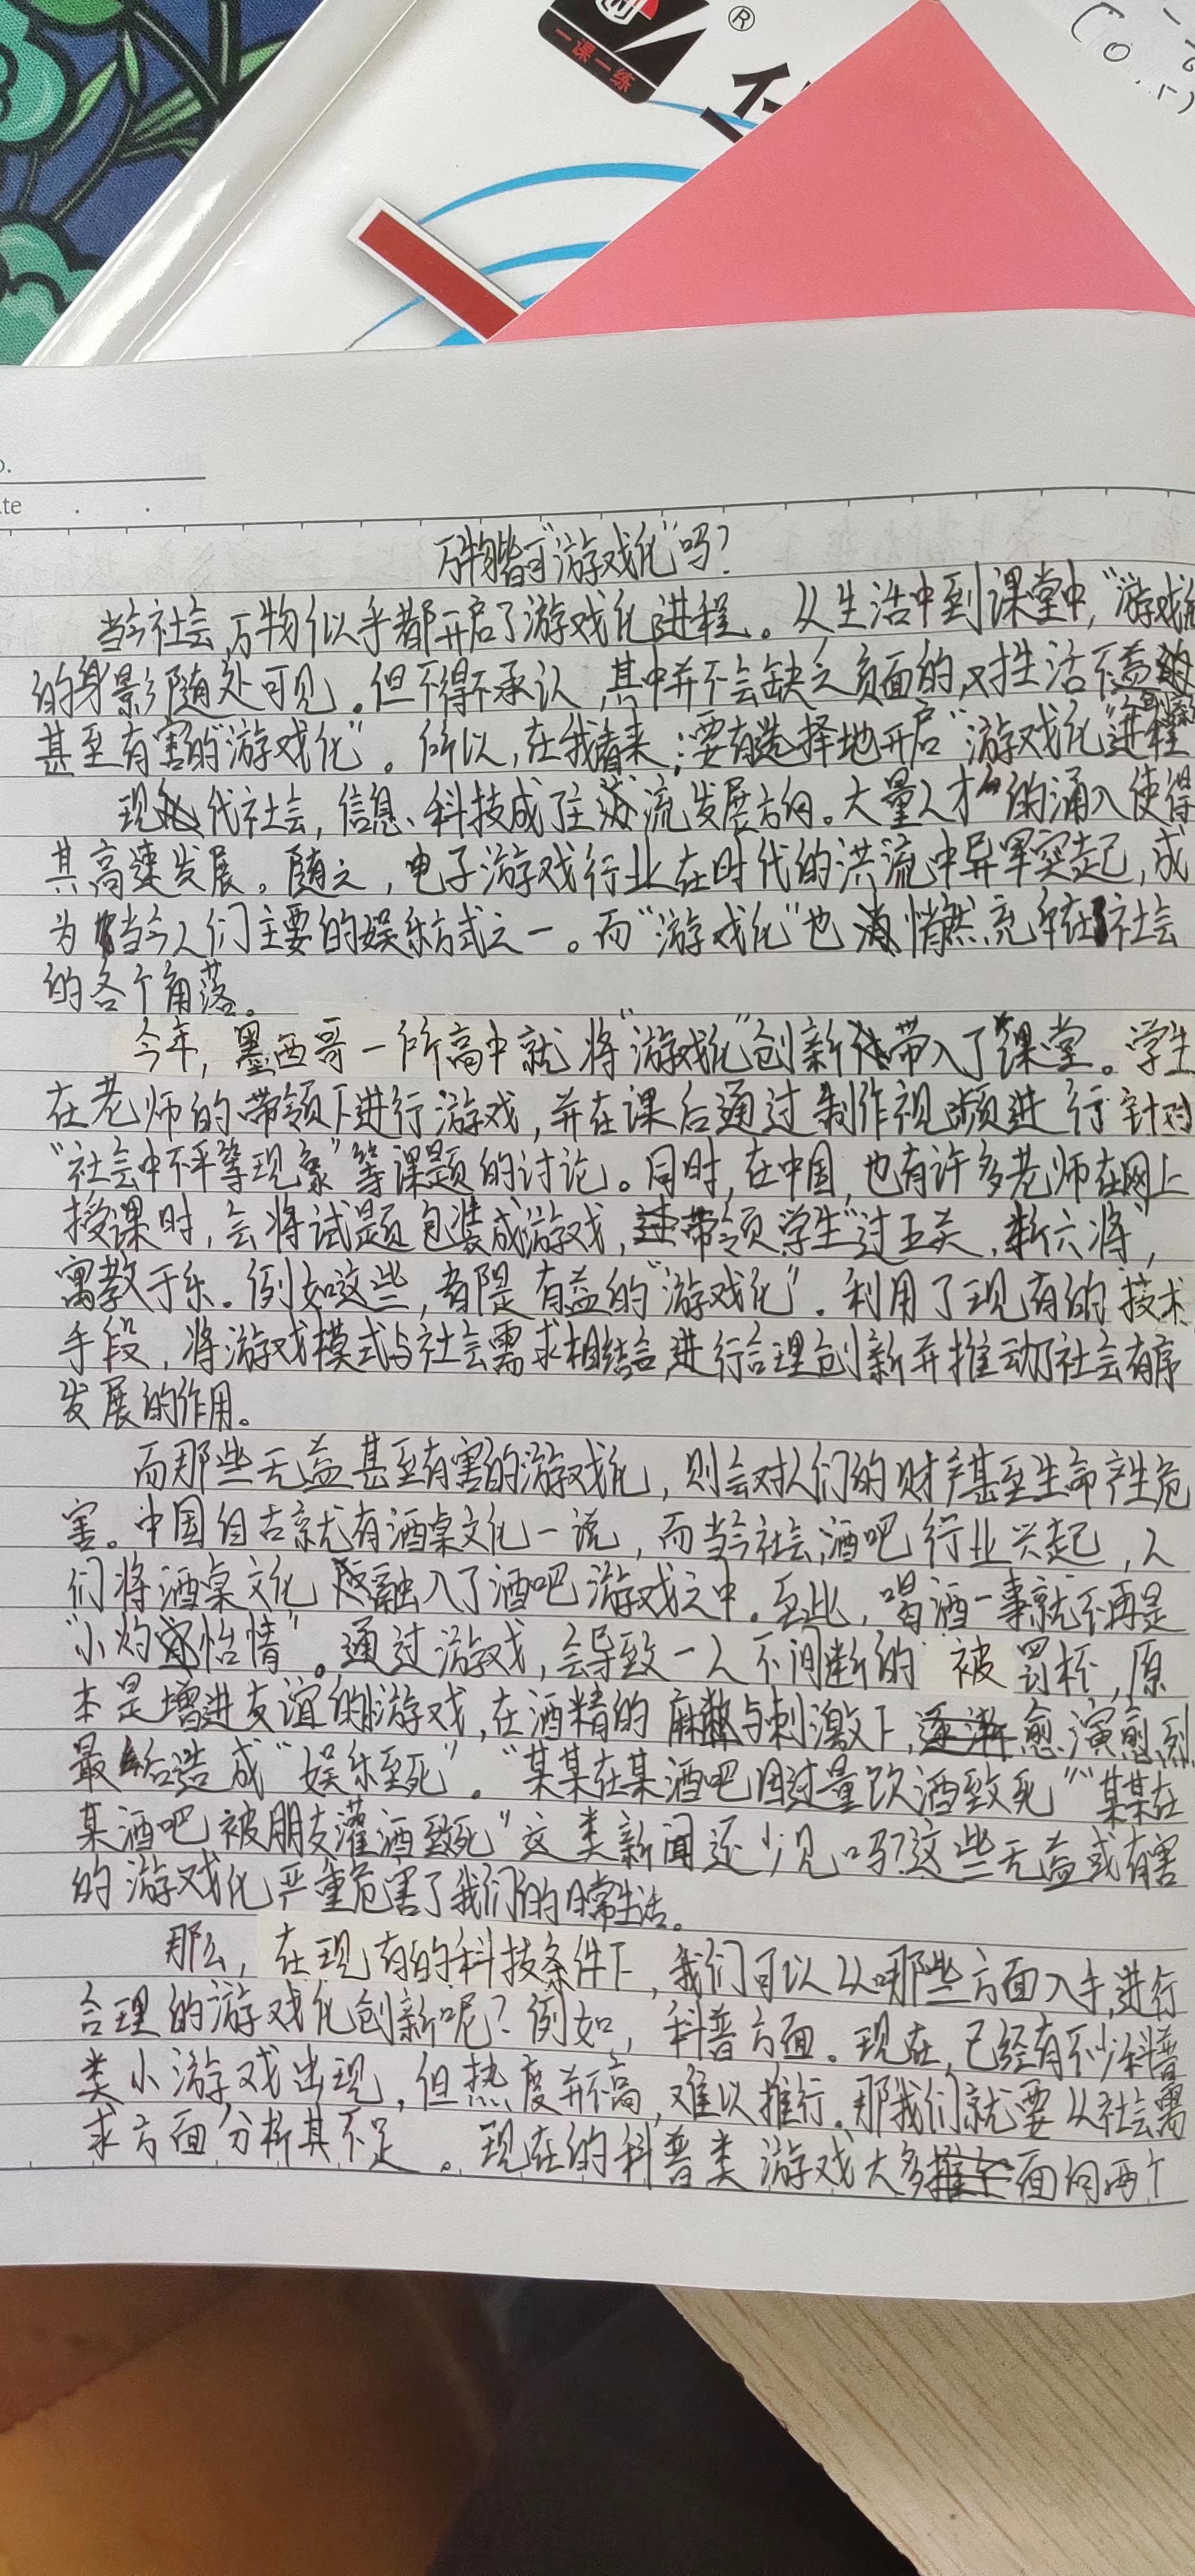 ®
一课一练
te
万物皆可“游戏化”吗?
当今社会,万物似乎都开启了游戏化进程。从生活中到课堂中,“游戏化
的身影随处可见。但不得不承认,其中并不会缺乏负面的,对生活不益的
甚至有害的“游戏化”。所以,在我看来:要有选择地开启“游戏化”进程
现代社会,信息、科技成了主流发展方向。大量人才的涌入使得
其高速发展。随之,电子游戏行业在时代的洪流中异军突起,成
为当今人们主要的娱乐方式之一。而“游戏化”也悄然充斥在社会
的各个角落。
今年,墨西哥一所高中就将“游戏化”创新带入了课堂。学生
在老师的带领下进行游戏,并在课后通过制作视频进行针对
“社会中不平等现象”等课题的讨论。同时,在中国,也有许多老师在网上
授课时,会将试题包装成游戏,带领学生“过五关,斩六将”,
寓教于乐。例如这些,都是有益的“游戏化”.利用了现有的技术
手段,将游戏模式与社会需求相结合,进行合理创新并推动了社会有序
发展的作用。
而那些无益甚至有害的游戏化,则会对人们的财产甚至生命产生危
害。中国自古就有酒桌文化一说,而当今社会,酒吧行业兴起,人
们将酒桌文化融入了酒吧游戏之中.至此,喝酒一事就不再是
“小灼怡情”。通过游戏,会导致一人不间断的被罚杯,原
本是增进友谊的游戏,在酒精的麻与刺激下,愈演愈烈
最后造成“娱乐至死”。“某某在某酒吧因过量饮酒致死”“某某在
某酒吧被朋友灌酒致死”这类新闻还少见吗?这些无益或有害
的游戏化严重危害了我们的日常生活。
那么,在现有的科技条件下,我们可以从哪些方面入手,进行
合理的游戏化创新呢?例如,科普方面。现在,已经有不少科普
类小游戏出现,但热度并不高,难以推行.那我们就要从社会需
求方面分析其不足。现在的科普类游戏大多面向两个